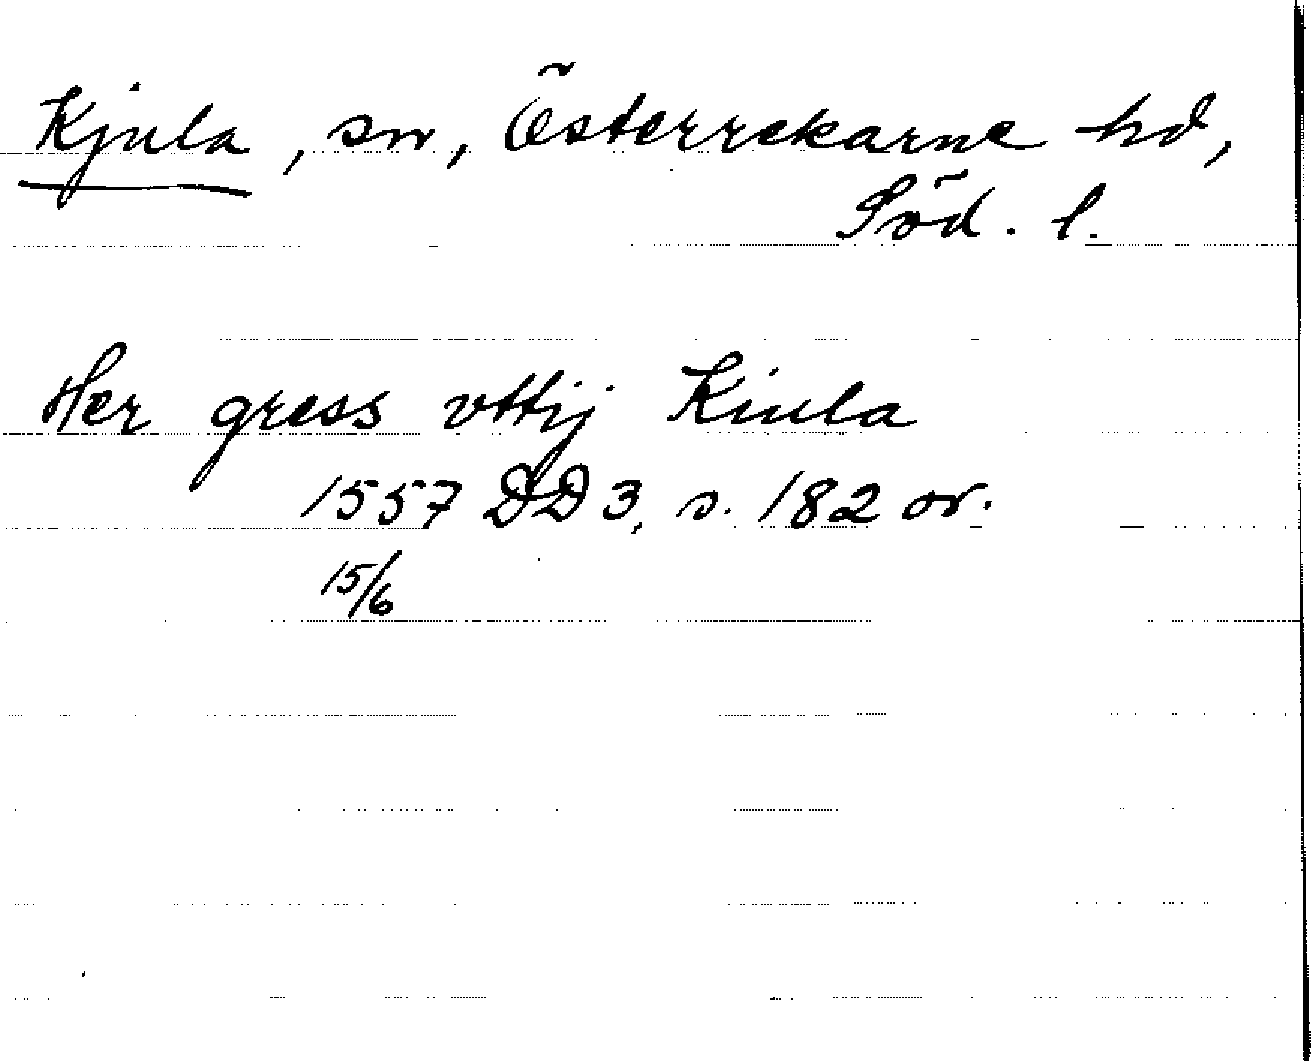 Kjula, sn, Österrekarne hd,
Söd. l.
Her gress vttij Kiula
1557 DD 3, s. 182 or.
15/6